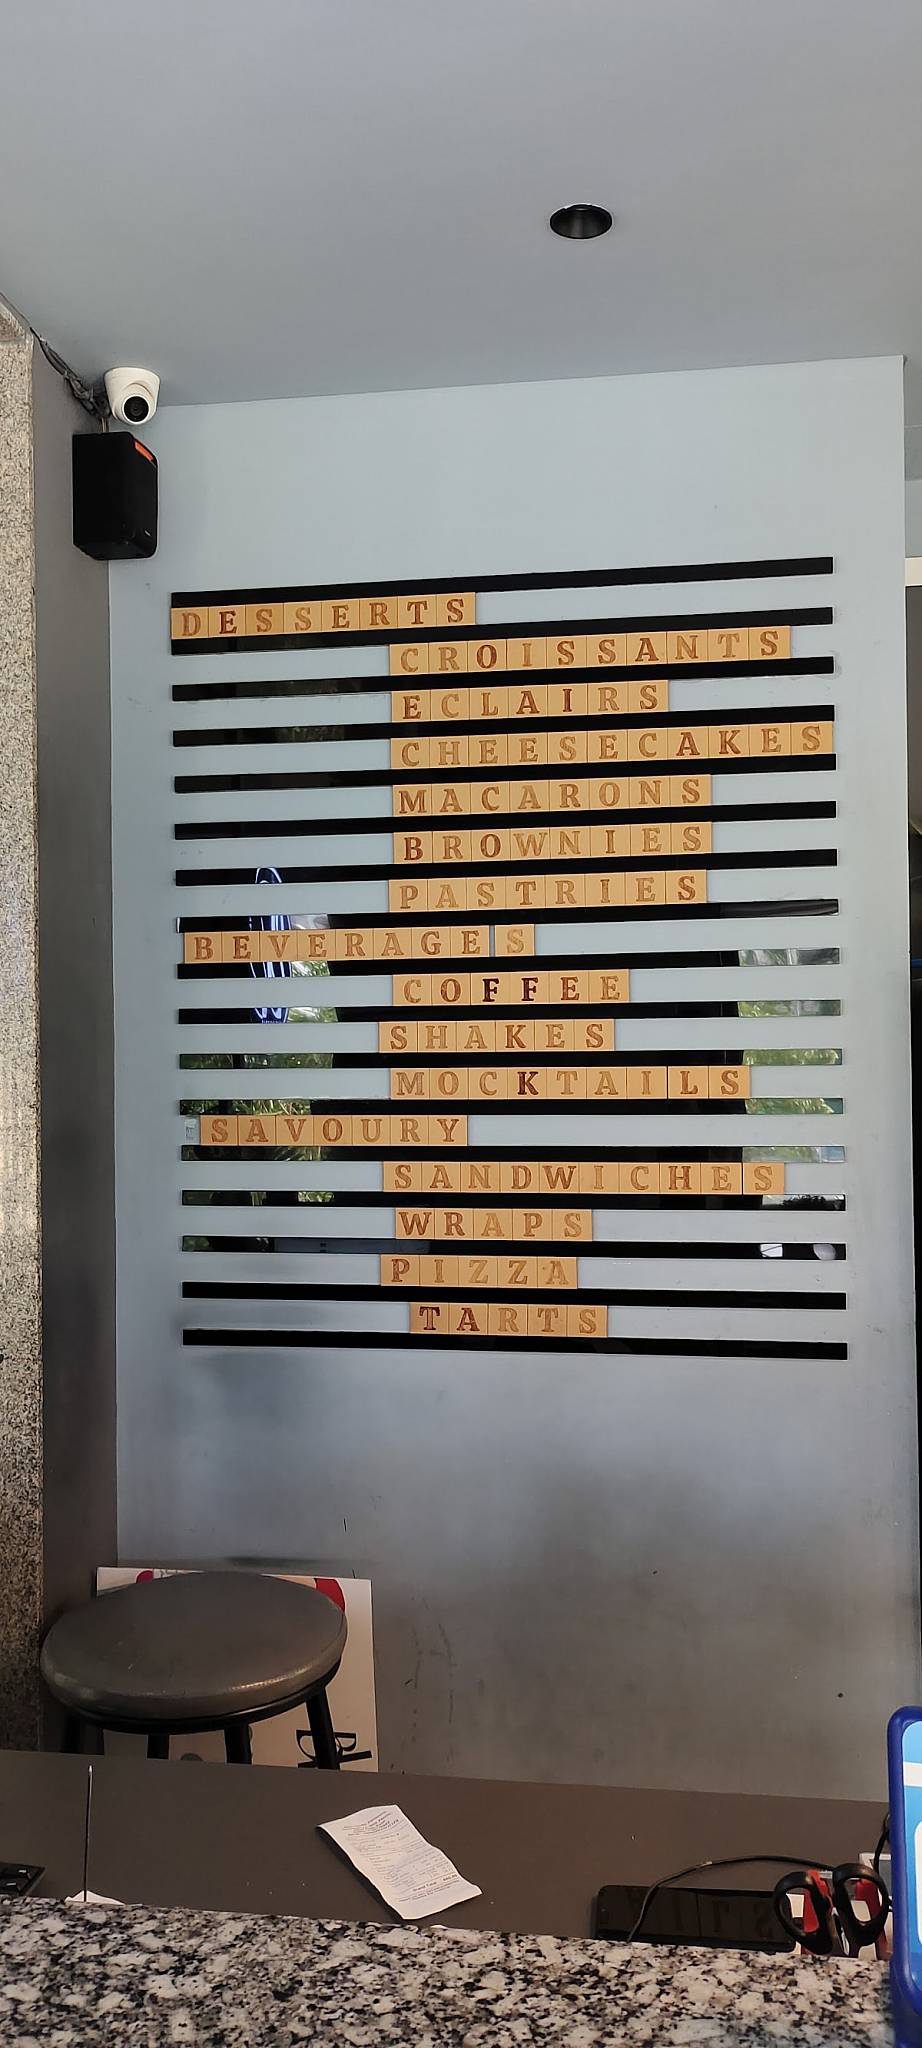 DESSERTS
CROISSANTS
ECLAIRS
CHEESECAKES
MACARONS
BROWNIES
PASTRIES
BEVERAGES
COFFEE
SHAKES
MOCKTAILS
SAVOURY
SANDWICHES
WRAPS
PIZZA
TARTS